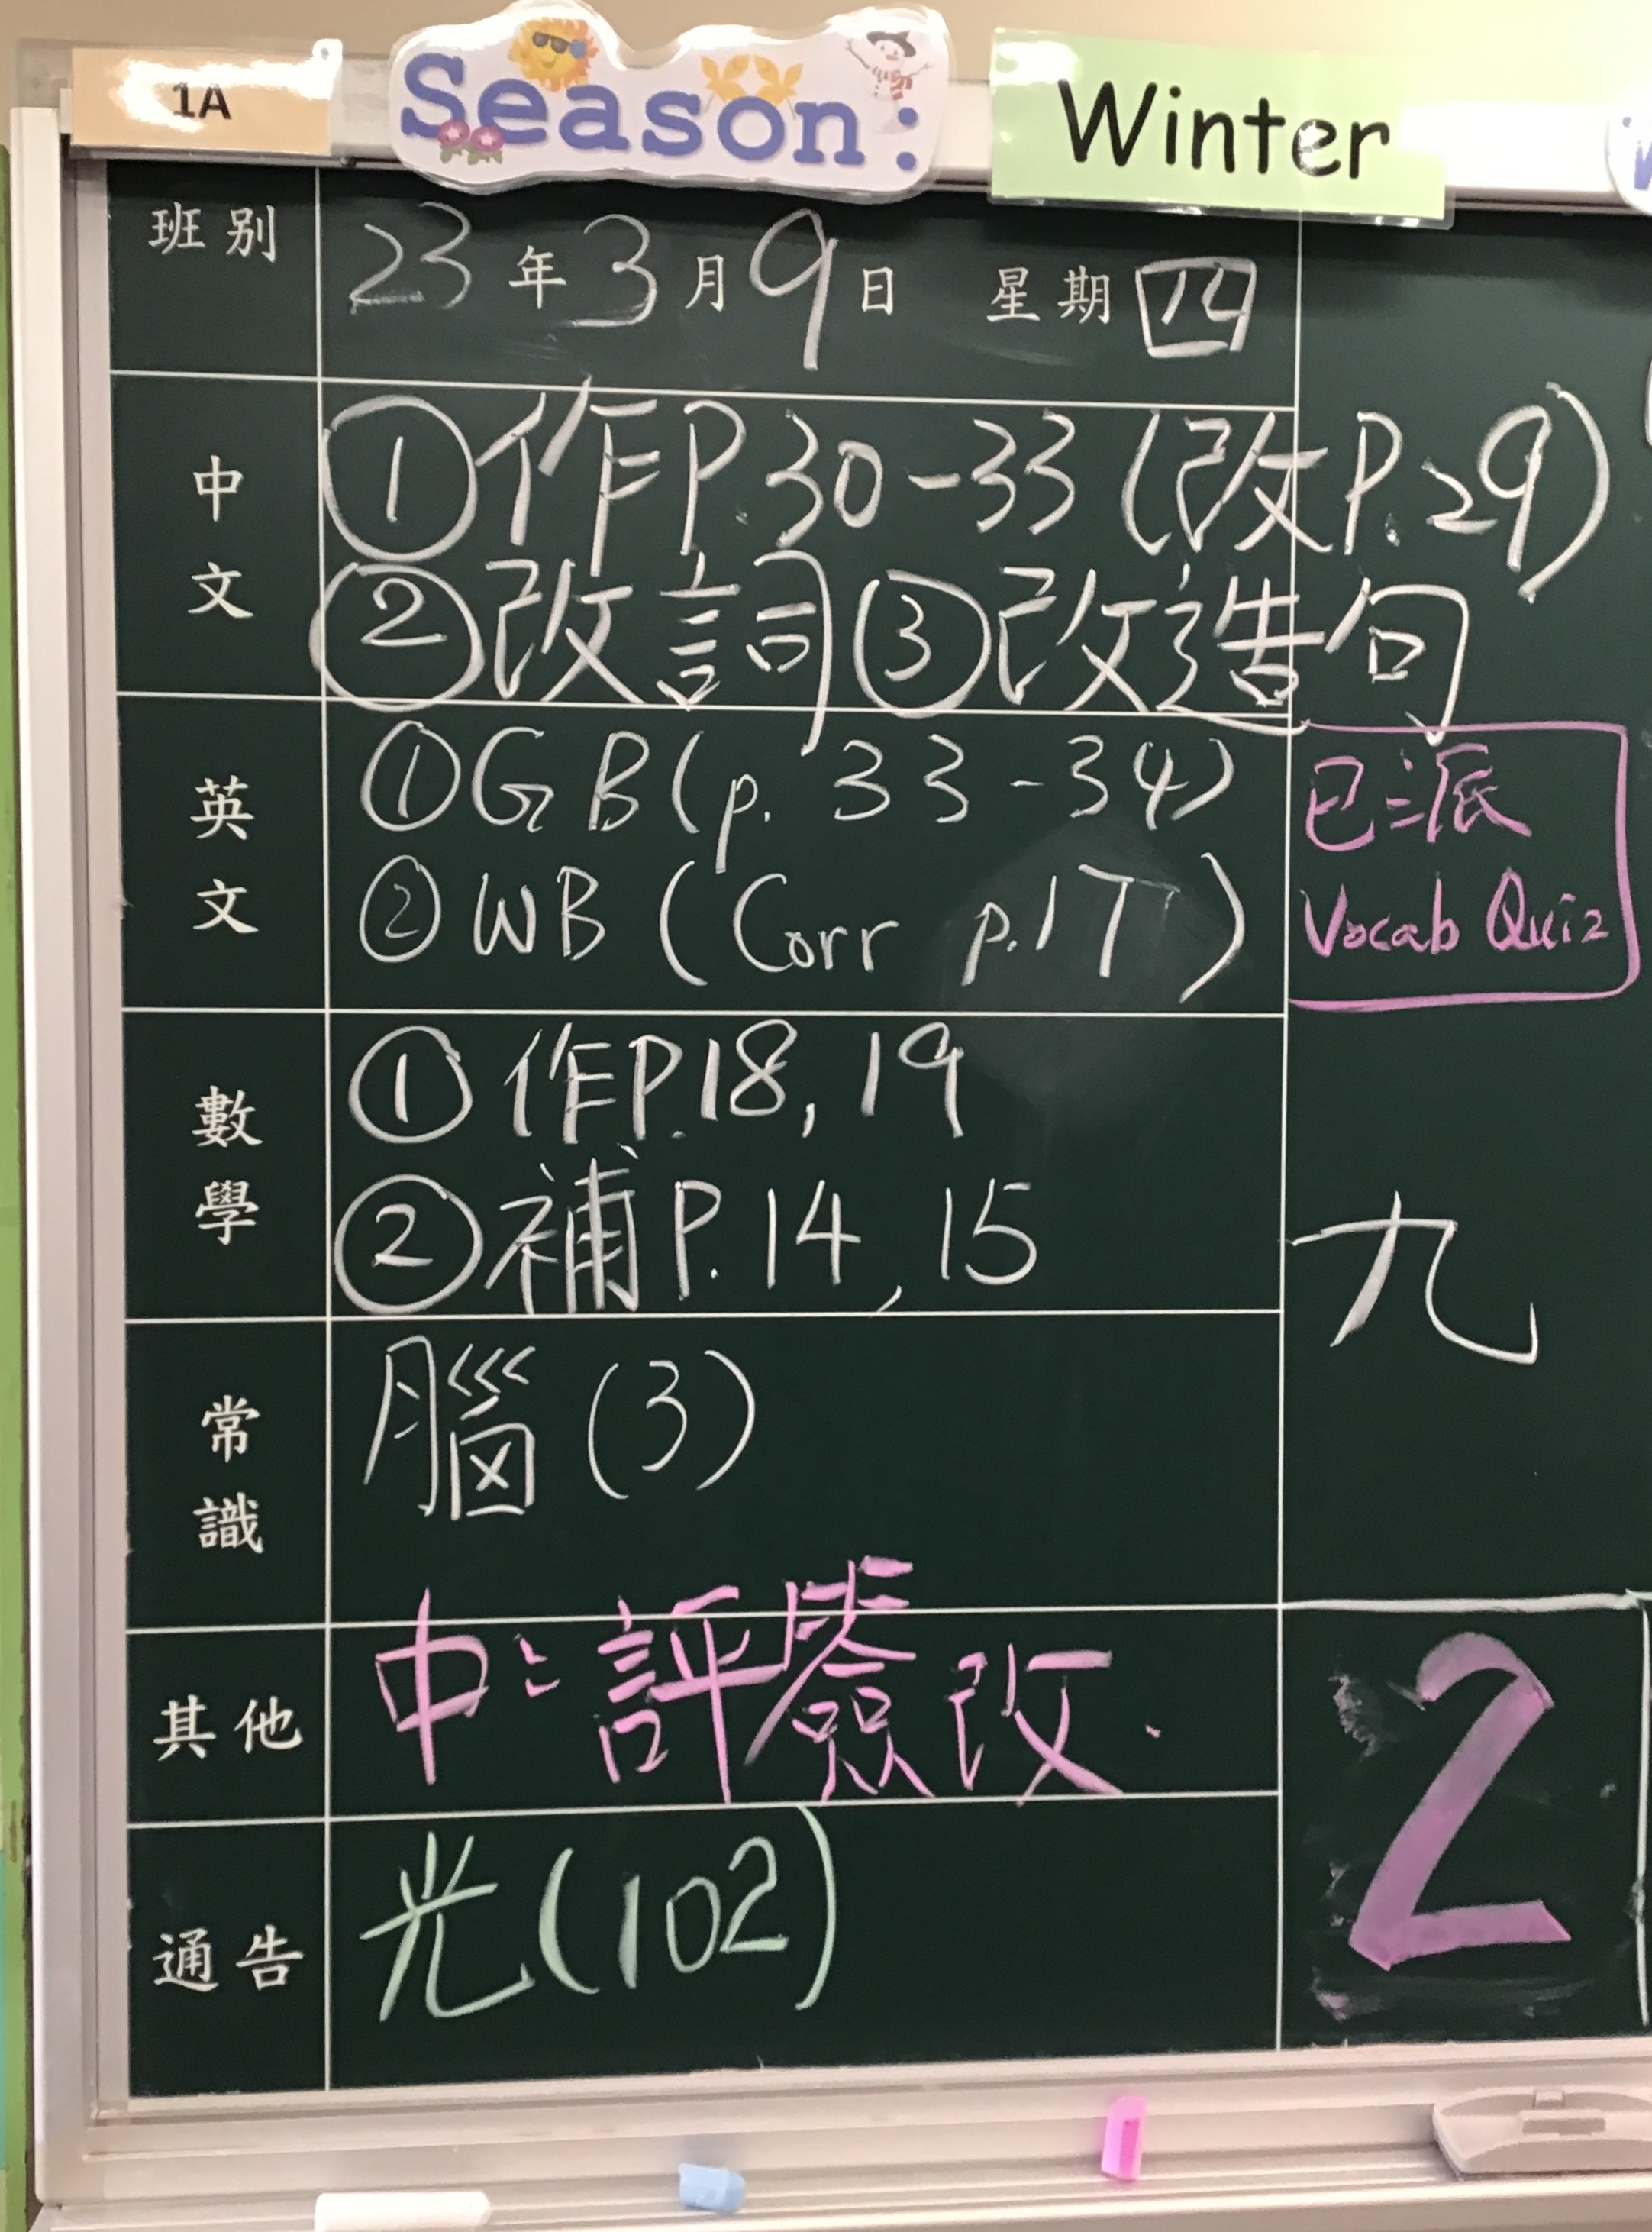 1A
Season:
Winter
班別
23年3月9日 星期四
中文
①作P.30-33(改P.29)
②改詞③改造句
英文
①GB(p. 33-34)
②WB (Corr p.17)
已派
Vocab Quiz
數學
①作P.18, 19
②補P.14, 15
九
常識
腦(3)
其他
中:評簽改.
2
通告
光(102)